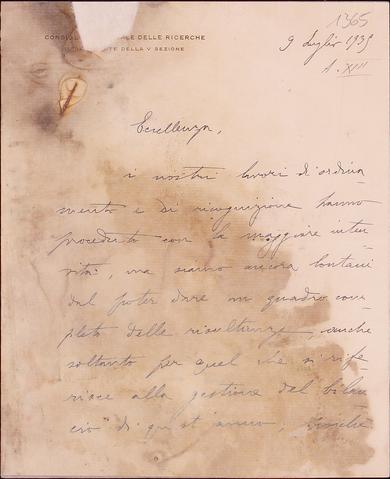 1365
CONSIGLIO NAZIONALE DELLE RICERCHE
DELLA V SEZIONE
9 Luglio 1935
A. XIII
Eccellenza,
i nostri lavori di ordina-
mento e di ricognizione hanno
proceduto con la maggiore inten-
sità, ma siamo ancora lontani
dal poter dare un quadro com-
pleto delle risultanze, anche
soltanto per quel che si rife-
risce alla gestione del bilan-
cio di quest'anno,